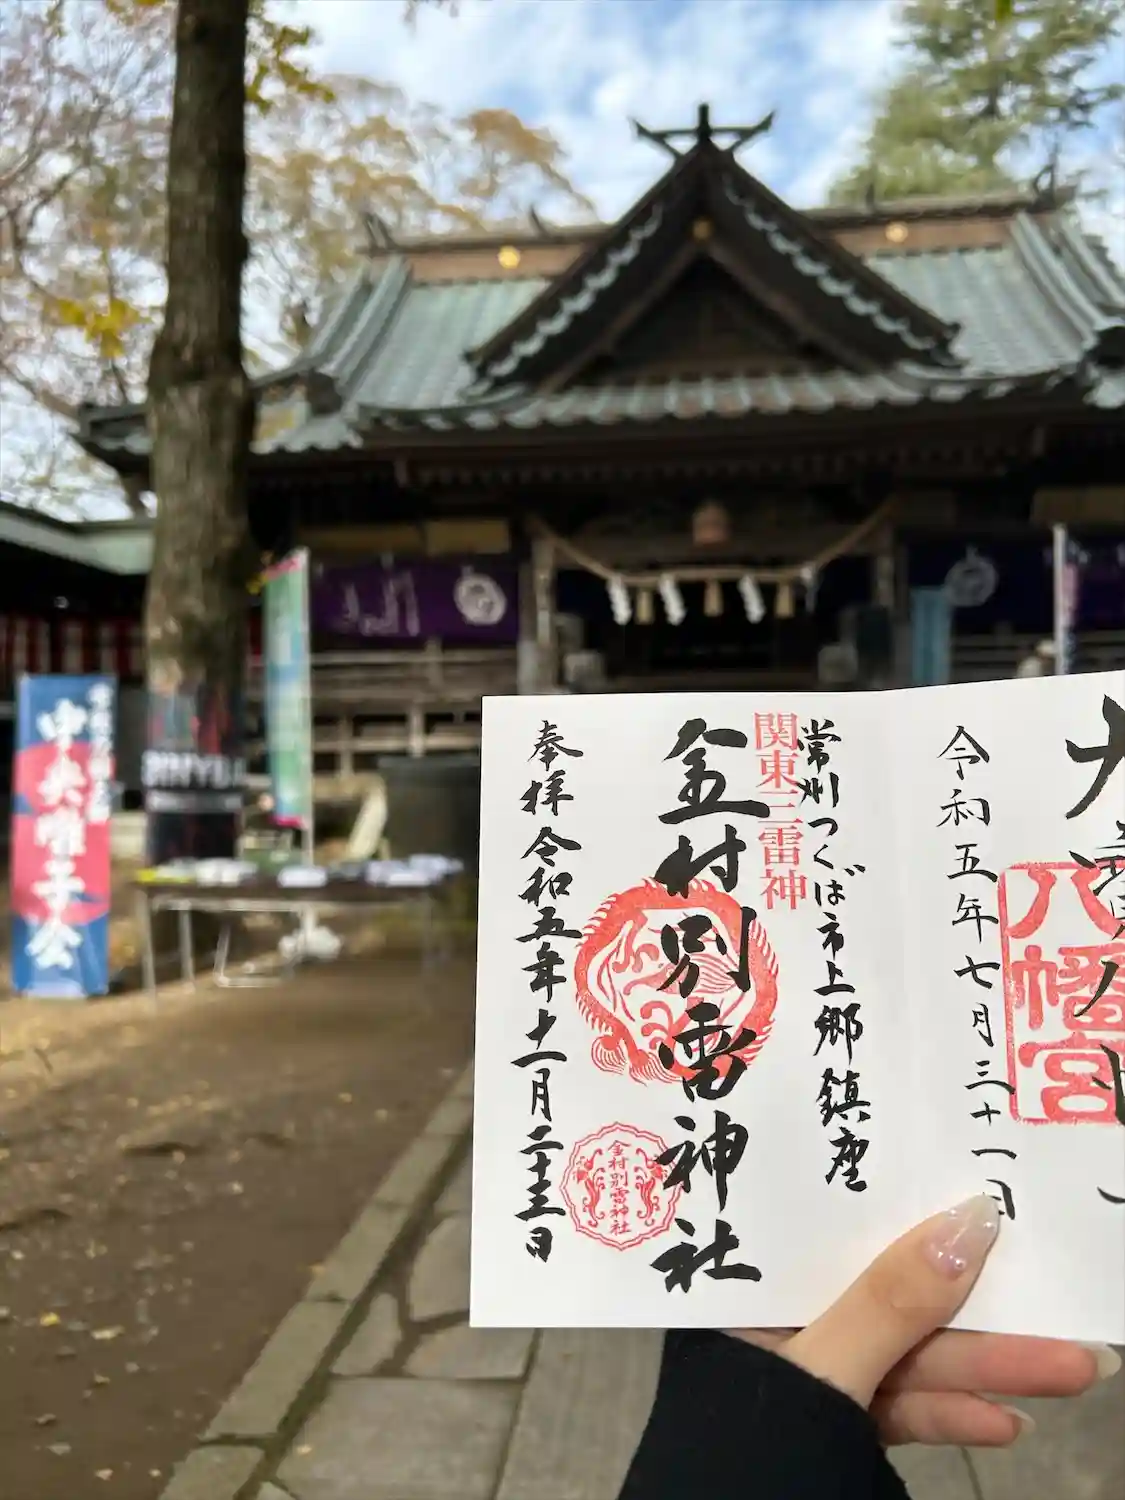 常州つくば市上郷鎮座
関東三雷神
金村別雷神社
金村別雷神社
奉拝 令和五年十一月二十三日
八幡宮
令和五年七月三十一日
中央囃子会